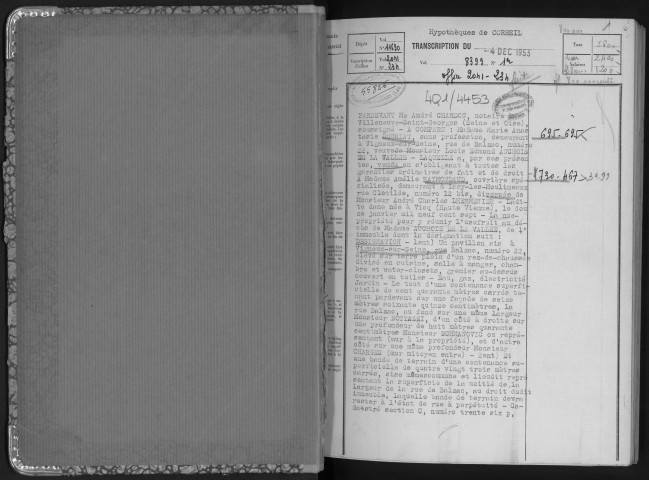 Hypothèques de CORBEIL
Dépôt
Vol.
TRANSCRIPTION DU -4 DEC 1953
Inscription d'office
Vol. 8399 n° 1
Taxe
4Q1/4453
PARDEVANT Me André CHARDON, notaire à
Villeneuve-Saint-Georges (Seine et Oise),
soussigné - A COMPARU : Madame Marie Anne
sans profession, demeurant
à Vigneux-sur-Seine, rue de Balzac, numéro
22, veuve de Monsieur Louis Edmond AUCHOIS
DE LA VALLEE - LAQUELLE a, par ces présen
tes, vendu en s'obligeant à toutes les
garanties ordinaires de fait et de droit
A Madame Amélie ouvrière spé
cialisée, demeurant à Issy-les-Moulineaux
rue Clotilde, numéro 12 bis, divorcée de
Monsieur André Charles - Ladi-
te dame née à Vicq (Haute Vienne), le dou
ze janvier mil neuf cent sept - La nue-
propriété pour y réunir l'usufruit au dé-
cès de Madame AUCHOIS DE LA VALLEE, de l'
immeuble dont la désignation suit :
DESIGNATION - 1ent) Un pavillon sis à
Vigneux-sur-Seine, rue Balzac, numéro 22,
élevé sur terre plein d'un rez-de-chaussée
divisé en cuisine, salle à manger, cham-
bre et water-closets, grenier au-dessus
couvert en tuiles - Eau, gaz, électricité
Jardin - Le tout d'une contenance superfi-
cielle de cent quarante mètres carrés te-
nant pardevant sur une façade de seize
mètres soixante quinze centimètres, la
rue Balzac, au fond sur une même largeur
Monsieur d'un côté à droite sur
une profondeur de huit mètres quarante
centimètres Monsieur ou repré-
sentant (mur à la propriété), et d'autre
côté sur une même profondeur Monsieur
(mur mitoyen entre) - 2ent) Et
une bande de terrain d'une contenance su-
perficielle de quatre vingt trois mètres
carrés, sise mêmes commune et lieudit repré
sentant la superficie de la moitié de la
largeur de la rue de Balzac, au droit dudit
immeuble, laquelle bande de terrain devra
rester à l'état de rue à perpétuité - Ca-
dastré section C, numéro trente six P.